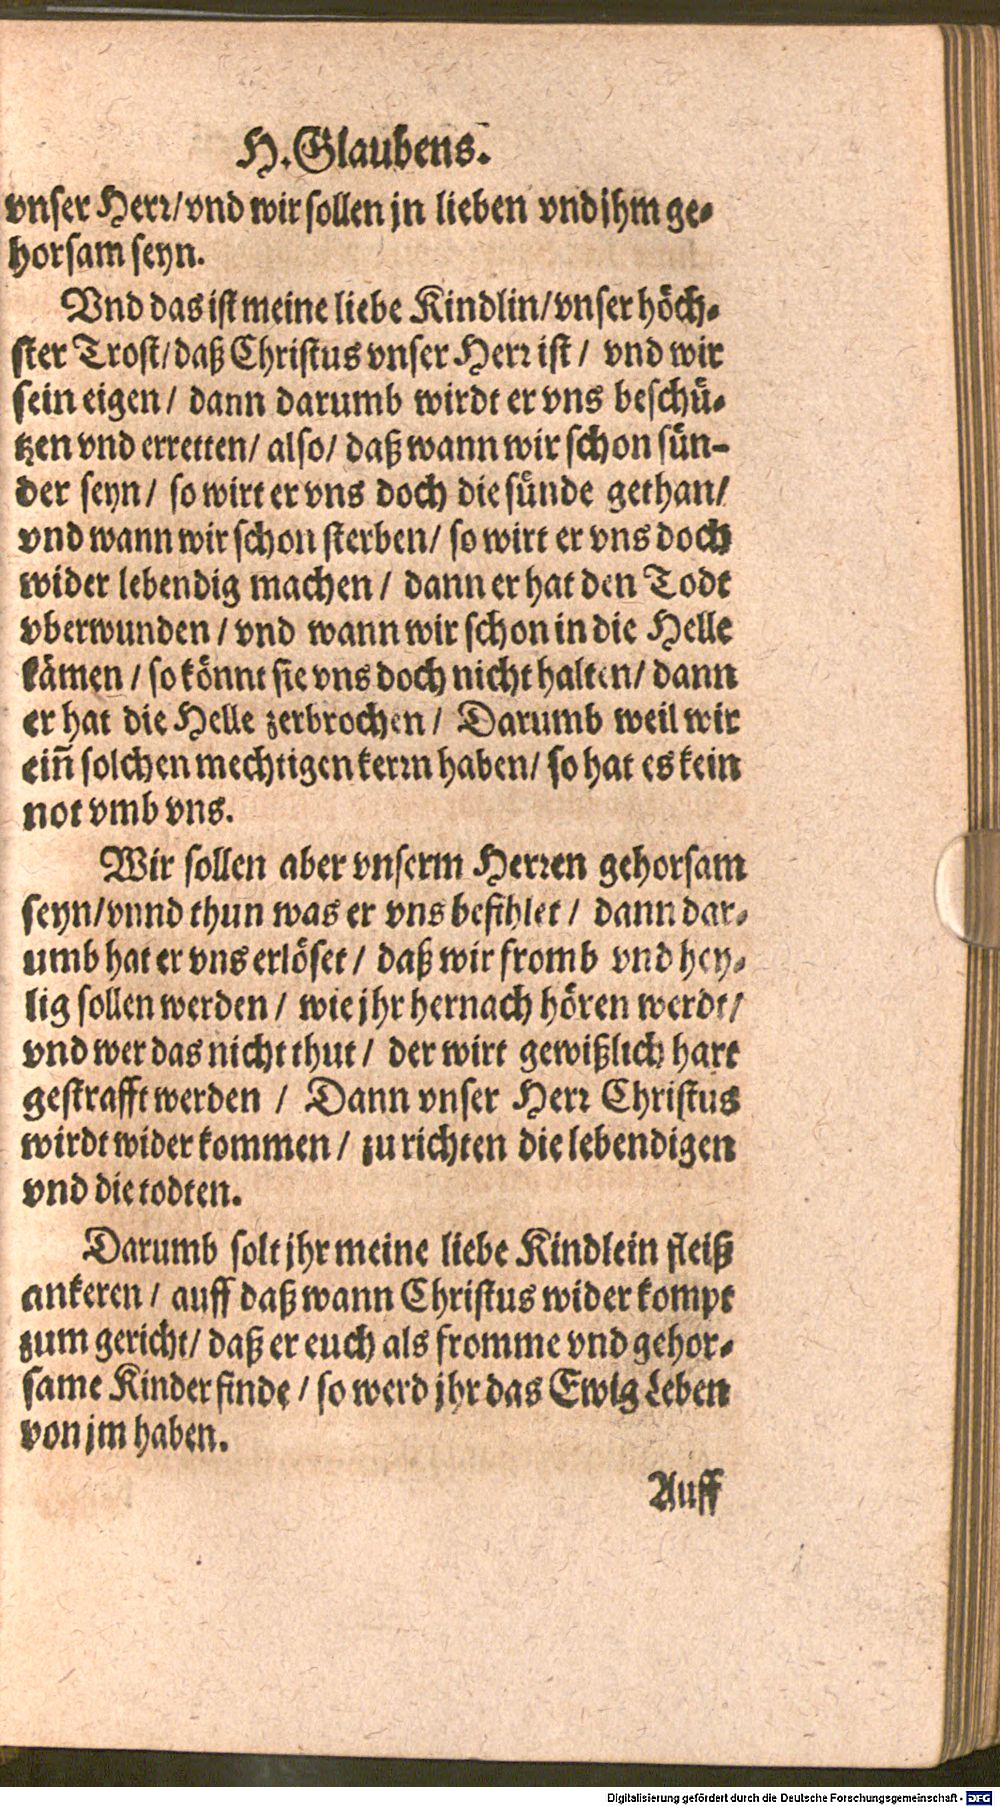 H. Glaubens.
vnser Herr/vnd wir sollen jn lieben vnd jhm ge-
horsam seyn.
Vnd das ist meine liebe Kindlin/vnser höch-
ster Trost/daß Christus vnser Herr ist/ vnd wir
sein eigen/ dann darumb wirdt er vns beschü-
tzen vnd erretten/ also/ daß wann wir schon sün-
der seyn/ so wirt er vns doch die sünde gethan/
vnd wann wir schon sterben/ so wirt er vns doch
wider lebendig machen/ dann er hat den Todt
vberwunden/ vnd wann wir schon in die Helle
kämen/ so könnt sie vns doch nicht halten/ dann
er hat die Helle zerbrochen/ Darumb weil wir
eiñ solchen mechtigen kerrn haben/ so hat es kein
not vmb vns.
Wir sollen aber vnserm Herren gehorsam
seyn/vnnd thun was er vns befihlet/ dann dar-
umb hat er vns erlöset/ daß wir fromb vnd hey-
lig sollen werden/ wie jhr hernach hören werdt/
vnd wer das nicht thut/ der wirt gewißlich hart
gestrafft werden/ Dann vnser Herr Christus
wirdt wider kommen/ zu richten die lebendigen
vnd die todten.
Darumb solt jhr meine liebe Kindlein fleiß
ankeren/ auff daß wann Christus wider kompt
zum gericht/ daß er euch als fromme vnd gehor-
same Kinder finde/ so werd jhr das Ewig Leben
von jm haben.
Auff
Digitalisierung gefördert durch die Deutsche Forschungsgemeinschaft - DFG